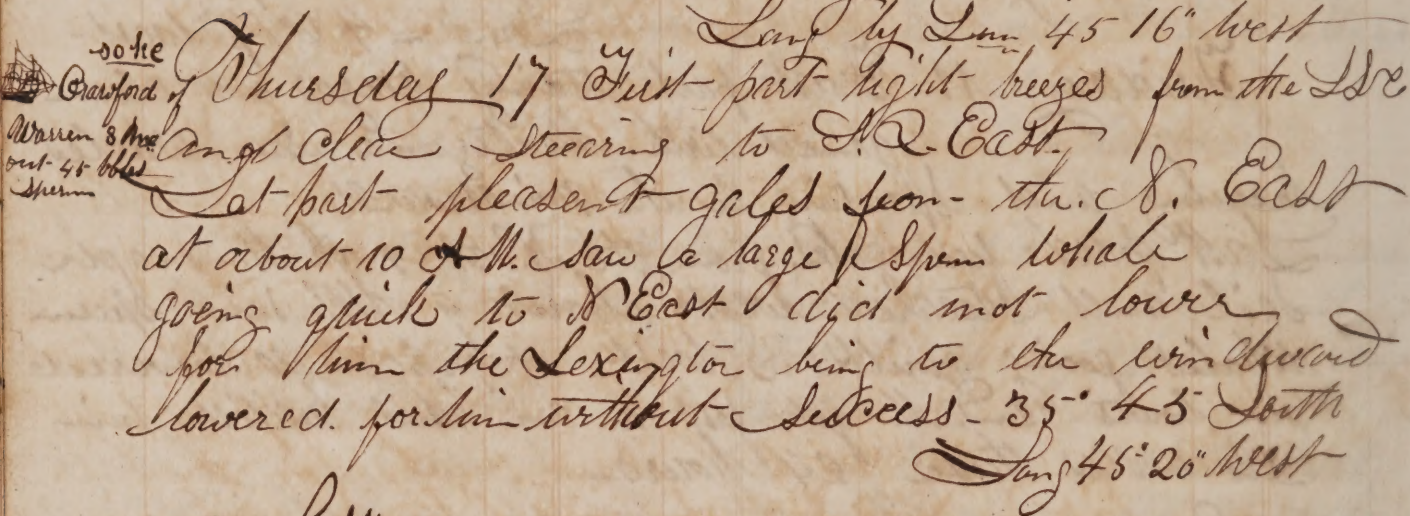 Long by Lun 45 16" west
spoke
Crawford of
Warren 8 Mos
out 45 bbls
sperm
Thursday 17 First part light breezes from the SSE
and clear steearing to S. East.
Lat part pleasent gales from the N. East
at about 10 A M. saw a large Sperm whale
going quick to N East did not lower
for him the Lexington being to the windward
lowered for him without success - 35° 45 South
Long 45° 20" West